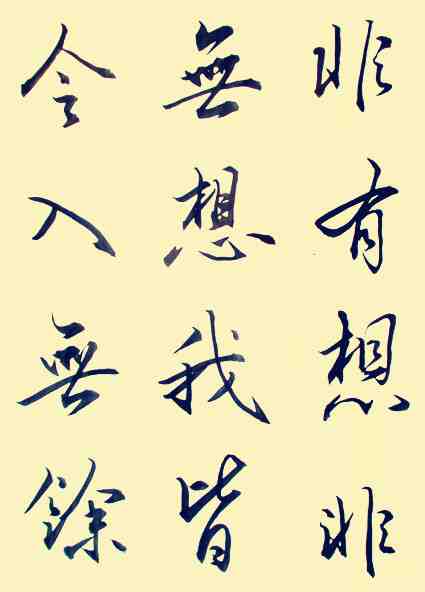 非有想非
無想我皆
令入無餘